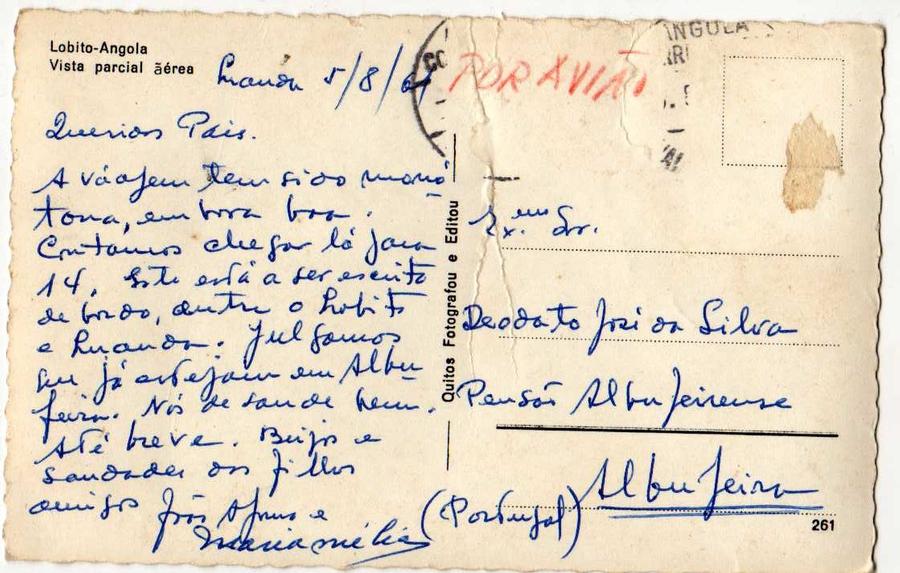 Lobito-Angola
Vista parcial aérea
Luanda 5/8/61
POR AVIÃO
ANGOLA
Queridos Pais.
A viagem tem sido monó
tona, embora boa.
Contamos chegar lá para
14. Este está a ser escrito
de bordo, entre o Lobito
e Luanda. Julgamos
que já estejam em Albu
feira. Nós de saude bem.
Até breve. Beijos e
saudades dos filhos
amigos José Afonso e
Maria Amélia
Quitos Fotografou e Editou
Ex.mo Snr.
Deodato José da Silva
Pensão Albufeirense
Albufeira
(Portugal)
261